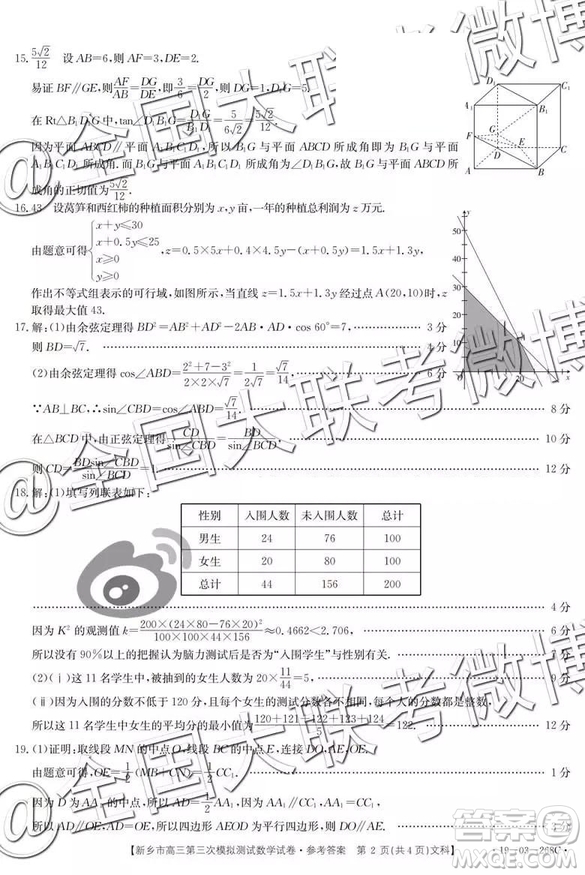 15. 5√2/12 设AB=6,则AF=3,DE=2.
易证BF∥GE,则AF/AB=DG/DE,即3/6=DG/2,则DG=1,D₁G=5.
在Rt△B₁D₁G中,tan∠D₁B₁G=D₁G/B₁D₁=5/6√2=5√2/12.
因为平面ABCD∥平面A₁B₁C₁D₁,所以B₁G与平面ABCD所成角即为B₁G与平面
A₁B₁C₁D₁所成角.而B₁G与平面A₁B₁C₁D₁所成角为∠D₁B₁G,故B₁G与平面ABCD所
成角的正切值为5√2/12.
D₁ C₁
A₁ B₁
F G E
D C
A B
16. 43 设莴笋和西红柿的种植面积分别为x,y亩,一年的种植总利润为z万元.
由题意可得{x+y≤30 x+0.5y≤25, x≥0 y≥0 z=0.5×5x+0.4×4.5y-(x+0.5y)=1.5x+1.3y,
作出不等式组表示的可行域,如图所示,当直线z=1.5x+1.3y经过点A(20,10)时,z
取得最大值43.
y
50
40
30
20
10
20
x
17. 解:(1)由余弦定理得BD²=AB²+AD²-2AB·AD·cos 60°=7, 3分
则BD=√7. 4分
(2)由余弦定理得cos∠ABD=(2²+7-3²)/(2×2×√7)=1/(2√7)=√7/14, 6分
∵AB⊥BC,∴sin∠CBD=cos∠ABD=√7/14. 8分
在△BCD中,由正弦定理得CD/sin∠CBD=BD/sin∠BCD, 10分
则CD=BDsin∠CBD/sin∠BCD=1. 12分
18. 解:(1)填写列联表如下:
性别 入围人数 未入围人数 总计
男生 24 76 100
女生 20 80 100
总计 44 156 200
4分
因为K²的观测值k=200×(24×80-76×20)²/(100×100×44×156)≈0.4662<2.706, 6分
所以没有90%以上的把握认为脑力测试后是否为“入围学生”与性别有关. 7分
(2)(ⅰ)这11名学生中,被抽到的女生人数为20×11/44=5, 9分
(ⅱ)因为入围的分数不低于120分,且每个女生的测试分数各不相同,每个人的分数都是整数,
所以这11名学生中女生的平均分的最小值为(120+121+122+123+124)/5=122. 12分
19. (1)证明:取线段MN的中点O,线段BC的中点E,连接DO,AE,OE.
由题意可得,OE=1/2(MB+CN)=1/2CC₁. 1分
因为D为AA₁的中点,所以AD=1/2AA₁,因为AA₁=CC₁,
所以AD∥OE,AD=OE,所以四边形AEOD为平行四边形, 4分
【新乡市高三第三次模拟测试数学试卷·参考答案 第2页(共4页)文科】 ·19-03-268C·
@全国大联考微博
@全国大联考微博
@全国大联考微博